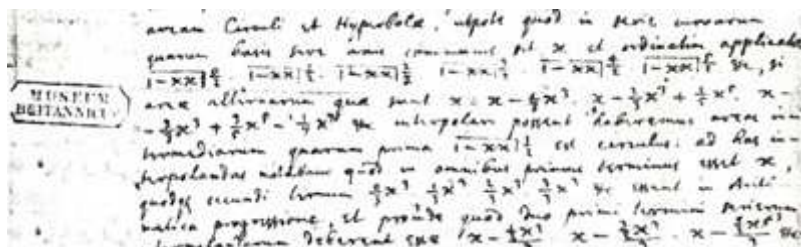 aream Circuli et Hyperbolæ, utpote quod in serie curvarum
quarum basis sive axis communis sit x et ordinatim applicatæ
1-xx|0/2. 1-xx|1/2. 1-xx|2/2. 1-xx|3/2. 1-xx|4/2. 1-xx|5/2 &c, si
areæ alternarum quæ sunt x. x-1/3x³. x-2/3x³+1/5x⁵. x-
MUSEUM
BRITANNICUM
-3/3x³+3/5x⁵-1/7x⁷ &c interpolari possent haberemus areas in-
termediarum quarum prima 1-xx|1/2 est circulus: ad has in-
terpolandas notabam quod in omnibus primus terminus esset x,
quodque secundi termini 0/3x³. 1/3x³. 2/3x³. 3/3x³ &c essent in Arith-
metica progressione, et proinde quod duo primi termini serierum
intercalandarum deberent esse x-